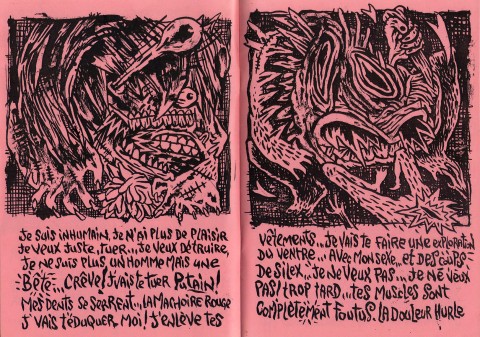 Je suis inhumain, je n'ai plus de plaisir
je veux juste tuer... je veux détruire,
je ne suis plus un homme mais une
Bête... Crève! j'vais te tuer Putain!
Mes dents se serrent... la machoire rouge
j'vais t'éduquer moi! j'enlève tes
vêtements... je vais te faire une exploration
du ventre... avec mon sexe... et des coups
de silex... je ne veux pas... je ne veux
pas! trop tard... tes muscles sont
complètement foutus. la douleur hurle